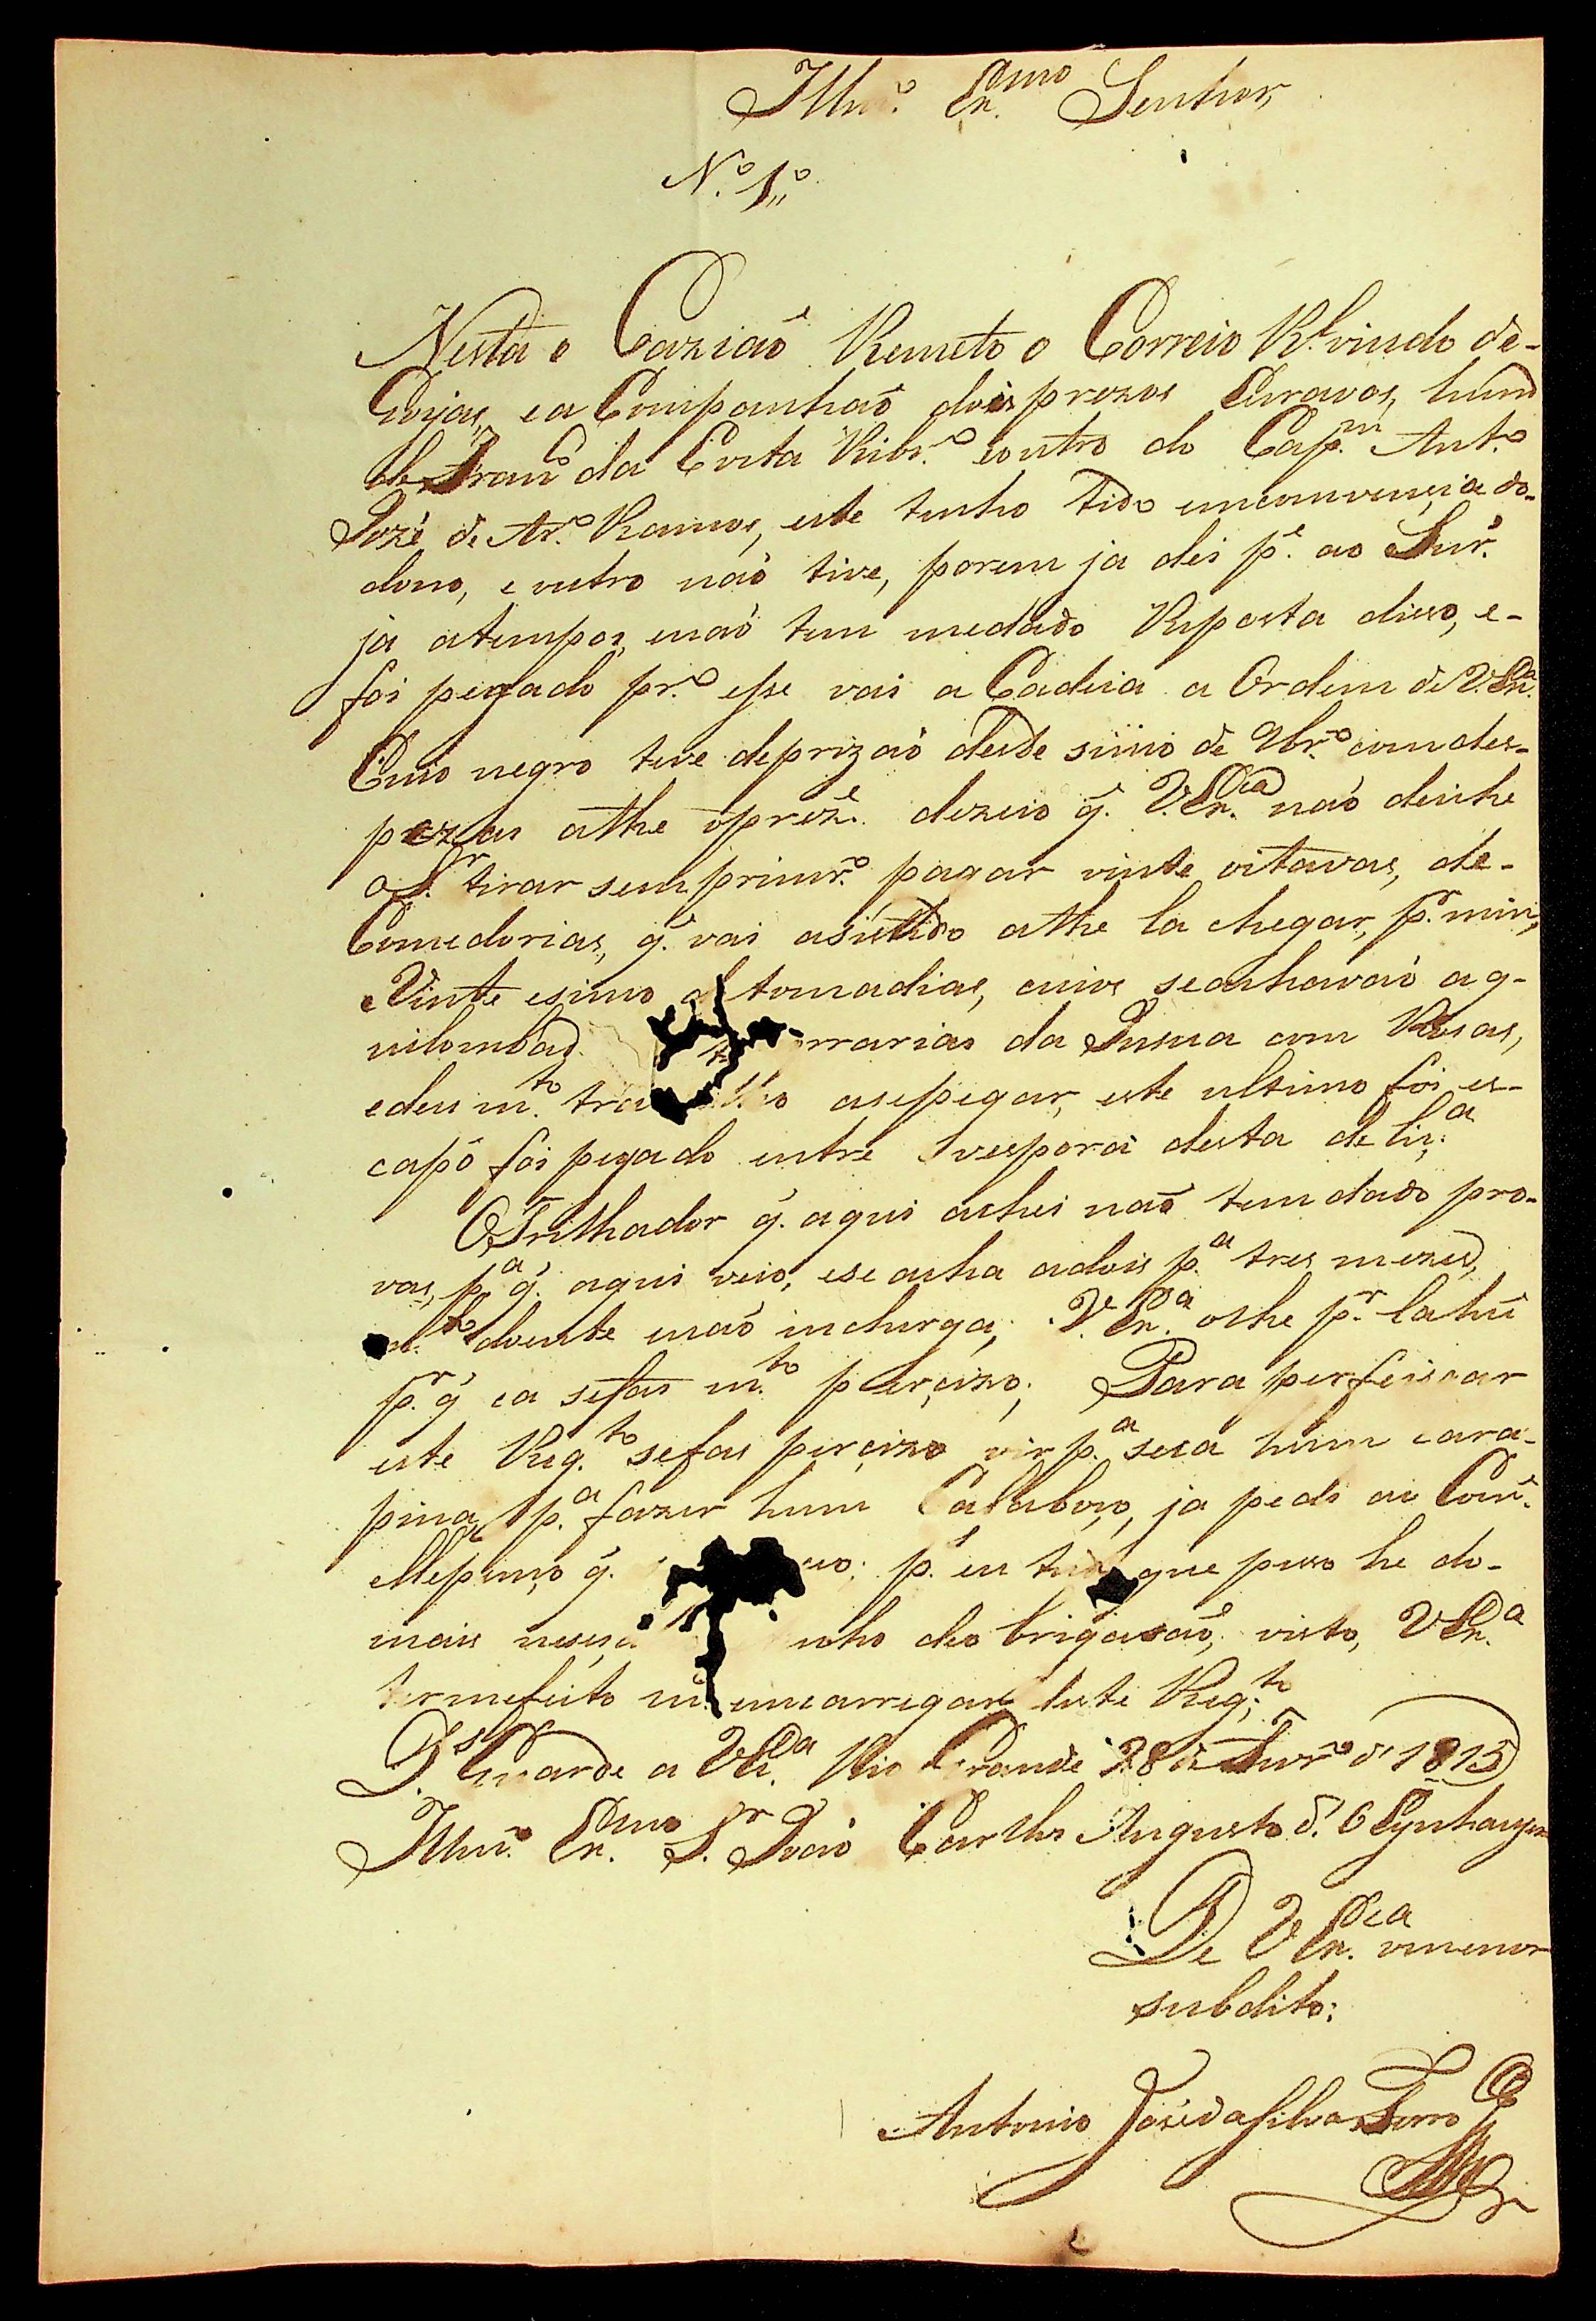 Illmº. Exmo Senhor
Nº. 1º
Nesta o Cazião Remeto o Correio Rl. vindo de-
Goyas, ea Companhão dois prezos Escravos, hum
de Franco da Costa Ribrº. eoutro do Capm. Antº.
Jozé de Arº. Ramos, este tenho tido
dono, e outro não tive, porem ja dei pe. ao Snr.
ja atempos, enaõ tem medado Reposta disso, e-
foi pegado prº. esse vai a Cadeia a Ordem de V.Exa.
negro tive deprizaõ desde sinco de 9brº. comdes-
pezas athe opreze. dezeio q. V.Exca. naõ deiche
o Sr. tirar sem primrº. pagar vinte oitavas, de-
Comedorias, q. vai asistido athe la chegar, pr. mim,
eVinte esinco tomadias, seachavaõ aq-
uilombad rrarias da com Rosas,
edeu mto. tra lho asepegar, este ultimo foi es-
capô foi pegado entre vespora desta
O Trilhador q. aqui achei naõ tem dado pro-
vas, pa. q. aqui veio, ese acha adois pa. tres mezes,
mto. doente enaõ incherga; V.Exa. olhe pr. la hũ
pr. q ca sefas mto. perçizo; Para perfeiscar
este Regto. sefas perçizo vir pa. seca hum cara-
pina, pa. fazer hum Calaboço, ja pedi ao
q. p. eu que posso he do-
mais nho deobrigasaõ, visto, VExa.
termefeito emcarregar deste Regto.
Ds. Guarde a VExa. Rio Grande 28 de Janrº d' 1815
Illmº. Exmo. Sr. Joaõ Carllos Augusto d' OEynhaugen
De VExca. omenor
subdito;
Antonio Joze da Silva